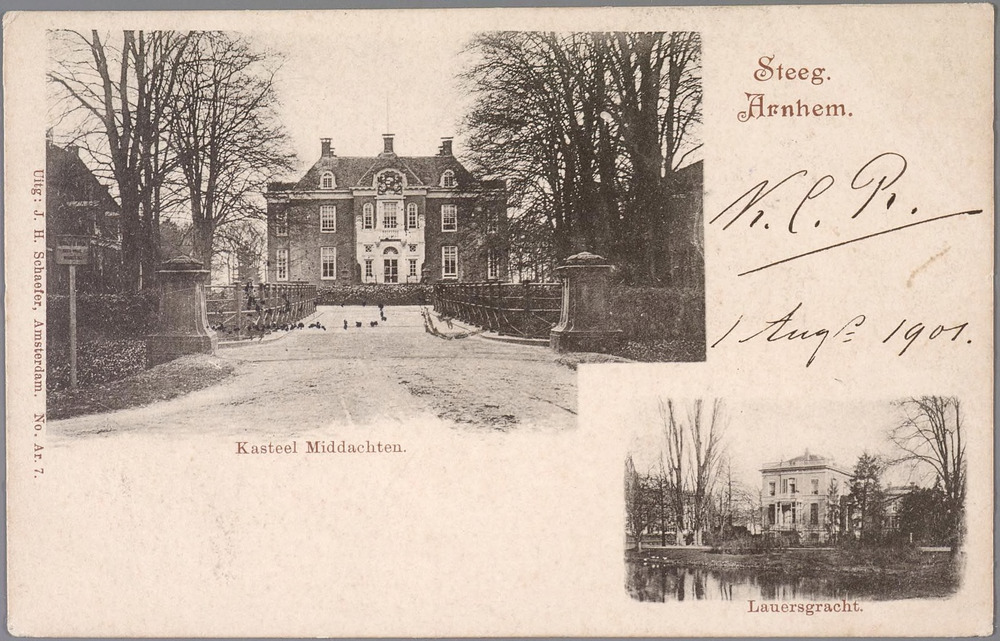 Steeg.
Arnhem.
K. C. R.
1 Augs 1901.
Kasteel Middachten.
Lauersgracht.
Uitg: J. H. Schaefer, Amsterdam. No. Ar. 7.